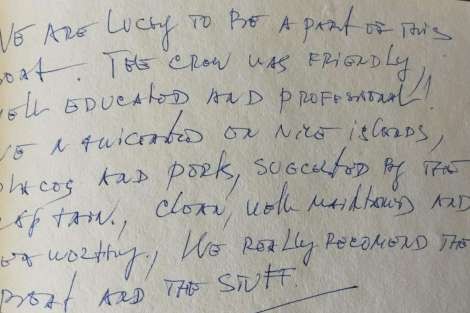 WE ARE LUCKY TO BE A PART OF THIS
BOAT. THE CREW WAS FRIENDLY,
WELL EDUCATED AND PROFESSIONAL!
WE NAVIGATED ON NICE ISLANDS,
PLACES AND PORTS, SUGESTED BY THE
CAPTAIN., CLEAN, WELL MAINTAINED AND
SEAWORTHY., WE REALLY RECOMEND THE
BOAT AND THE STUFF.